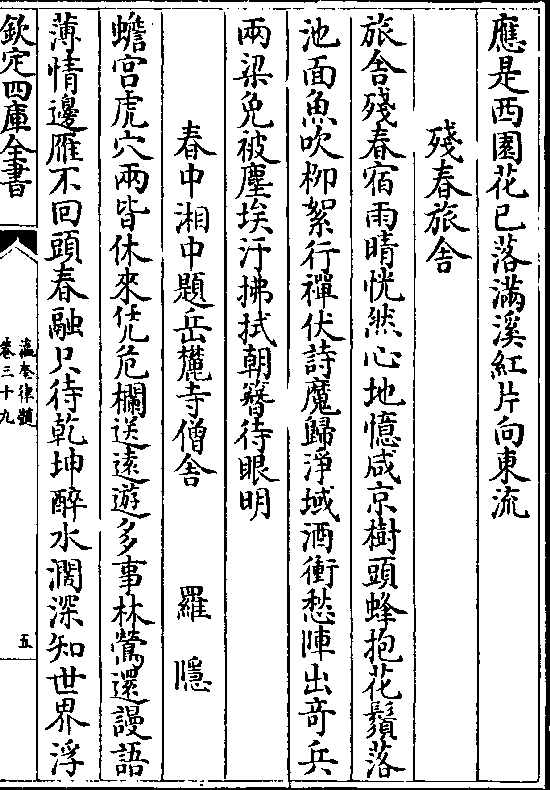 應是西園花已落滿溪紅片向東流
殘春旅舍
旅舍殘春宿雨晴恍然心地憶咸京樹頭蜂抱花鬚落
池面魚吹柳絮行禪伏詩魔歸淨域酒衝愁陣出奇兵
兩梁免被塵埃汙拂拭朝簪待眼明
春中湘中題岳麓寺僧舍 羅隱
蟾宮虎穴兩皆休來凭危欄送遠遊多事林鶯還謾語
薄情邊雁不回頭春融只待乾坤醉水濶深知世界浮
欽定四庫全書
瀛奎律髓
卷三十九
五